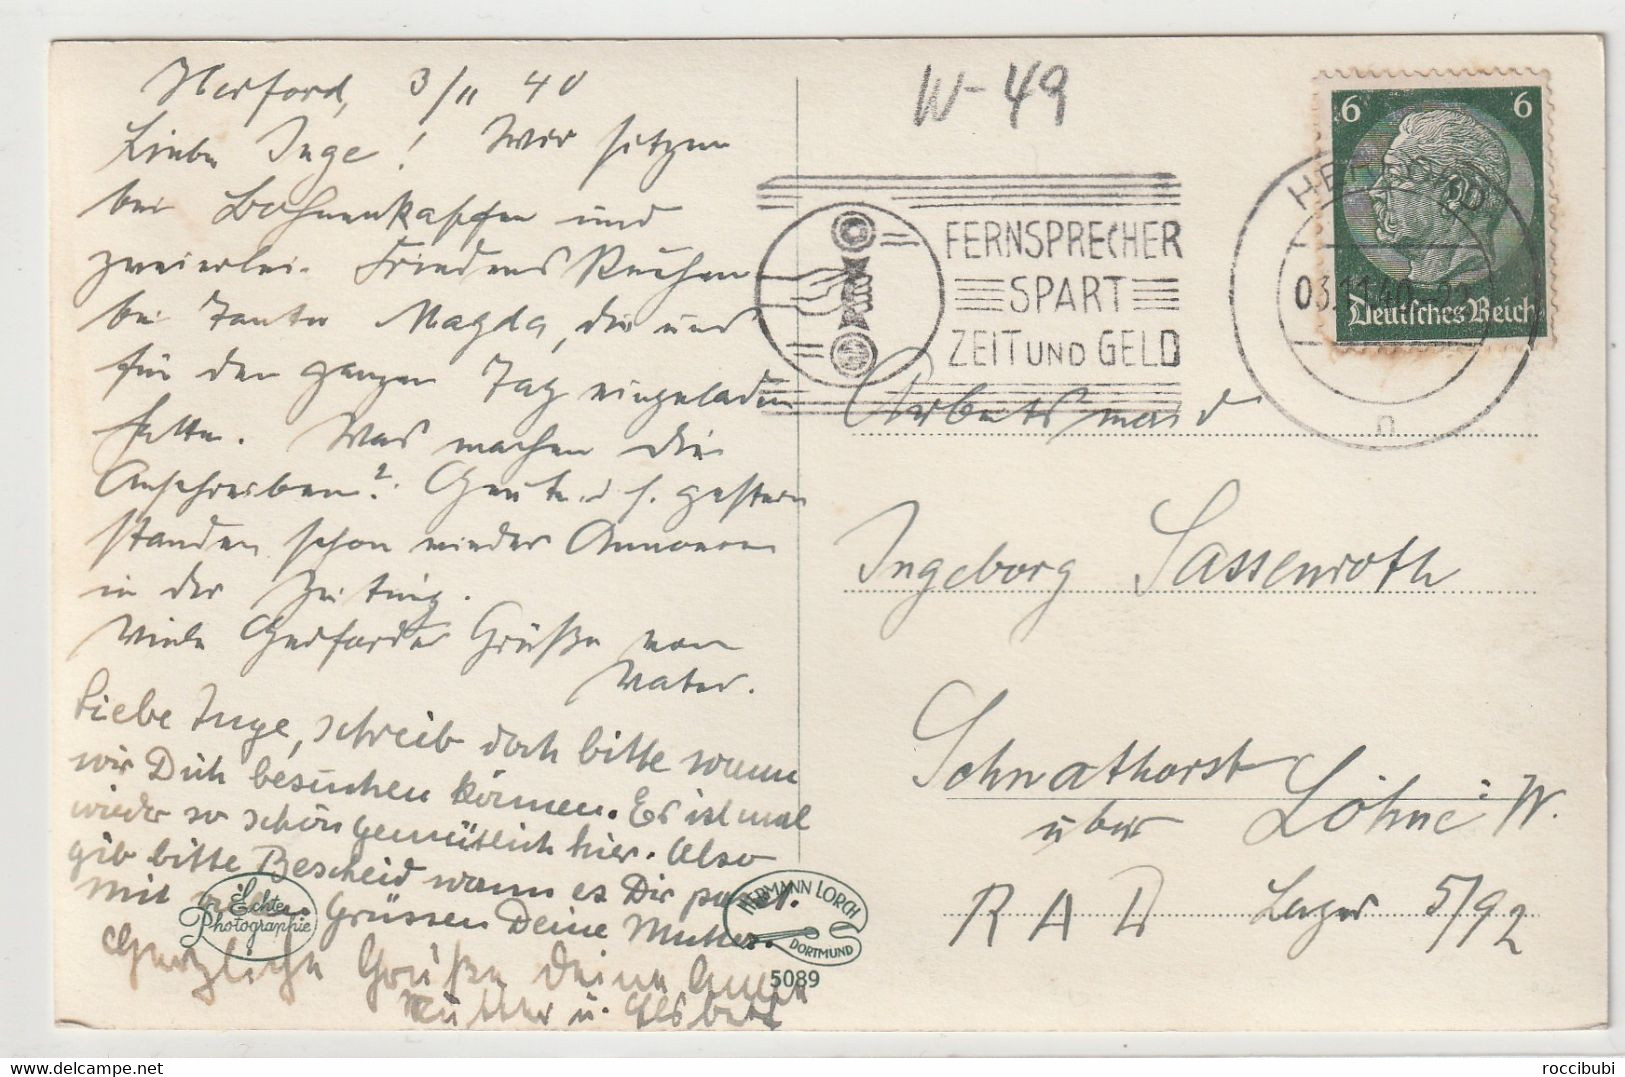 Herford, 3/11 40
Liebe Inge! Wir sitzen
bei Bohnenkaffee und
zweierlei Friedens Kuchen
bei Tante Magda, die uns
für den ganzen Tag eingeladen
hatte. Was machen die
Anschreiben? Heute u. gestern
standen schon wieder Annoncen
in der Zeitung.
Viele Herforder Grüße von
Vater.
Liebe Inge, schreib doch bitte wann
wir Dich besuchen können. Es ist mal
wieder so schön gemütlich hier. Also
gib bitte Bescheid wann es Dir passt.
Mit vielen Grüssen Deine Mutter.
Herzliche Grüße Deine
Mutter u. Elsbeth
Echte
Photographie
HERMANN LORCH
DORTMUND
5089
W-49
FERNSPRECHER
SPART
ZEIT UND GELD
HERFORD
03.11.40
n
6 6
Deutsches Reich
Arbeitsmaid
Ingeborg Sassenroth
Schnathorst
über Löhne i. W.
R A D Lager 5/92
roccibubi